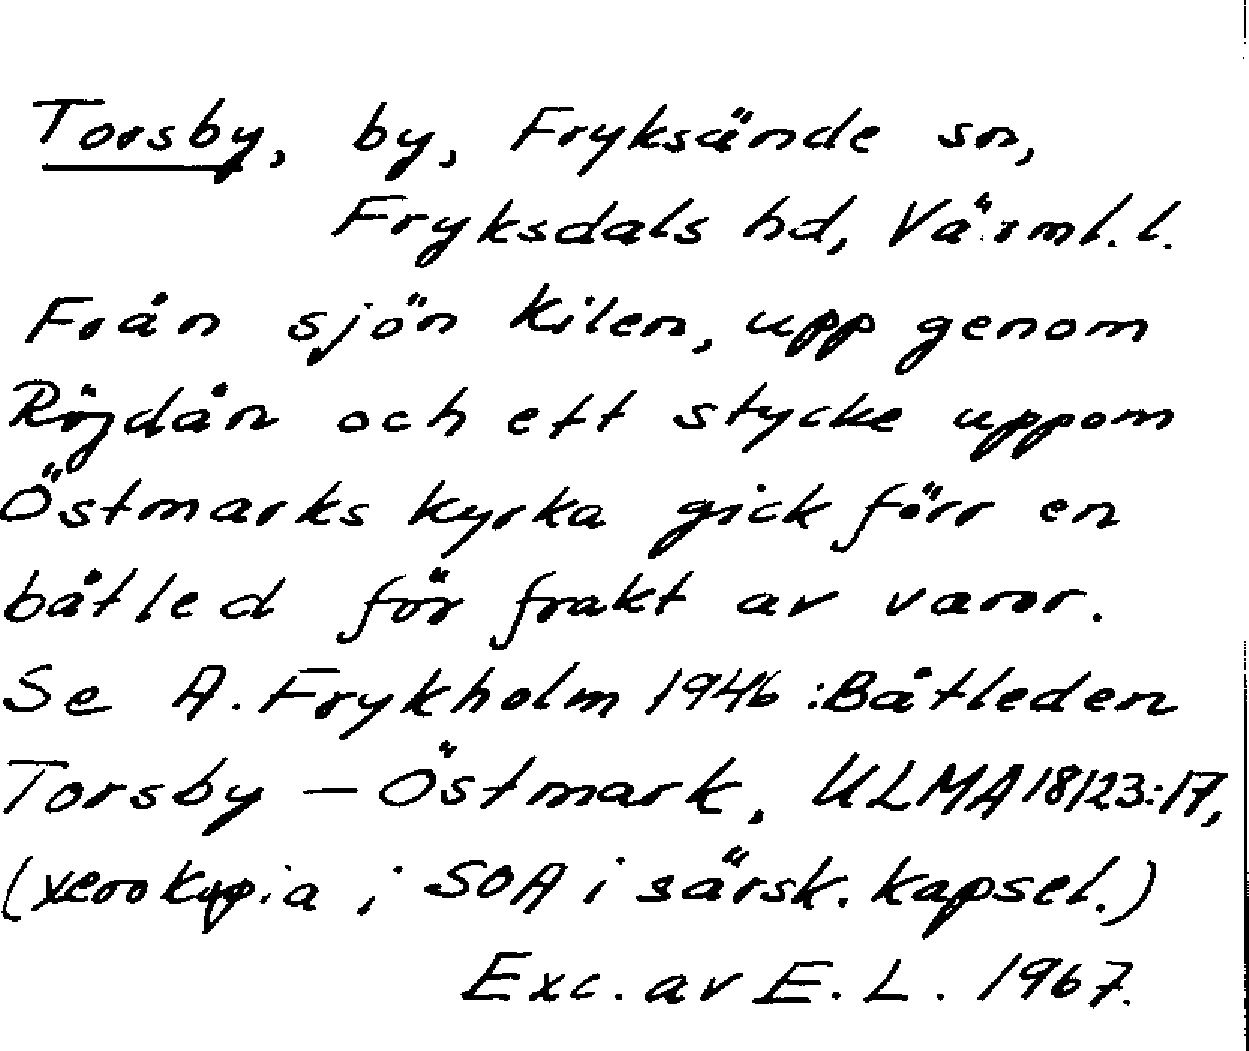 Torsby, by, Fryksände sn,
Fryksdals hd, Värml. l.
Från sjön Kilen, upp genom
Röjdån och ett stycke uppom
Östmarks kyrka gick förr en
båtled för frakt av varor.
Se A. Frykholm 1946 : Båtleden
Torsby – Östmark, ULMA 18123:17,
(xerokopia i SOA i särsk. kapsel.)
Exc. av E. L. 1967.